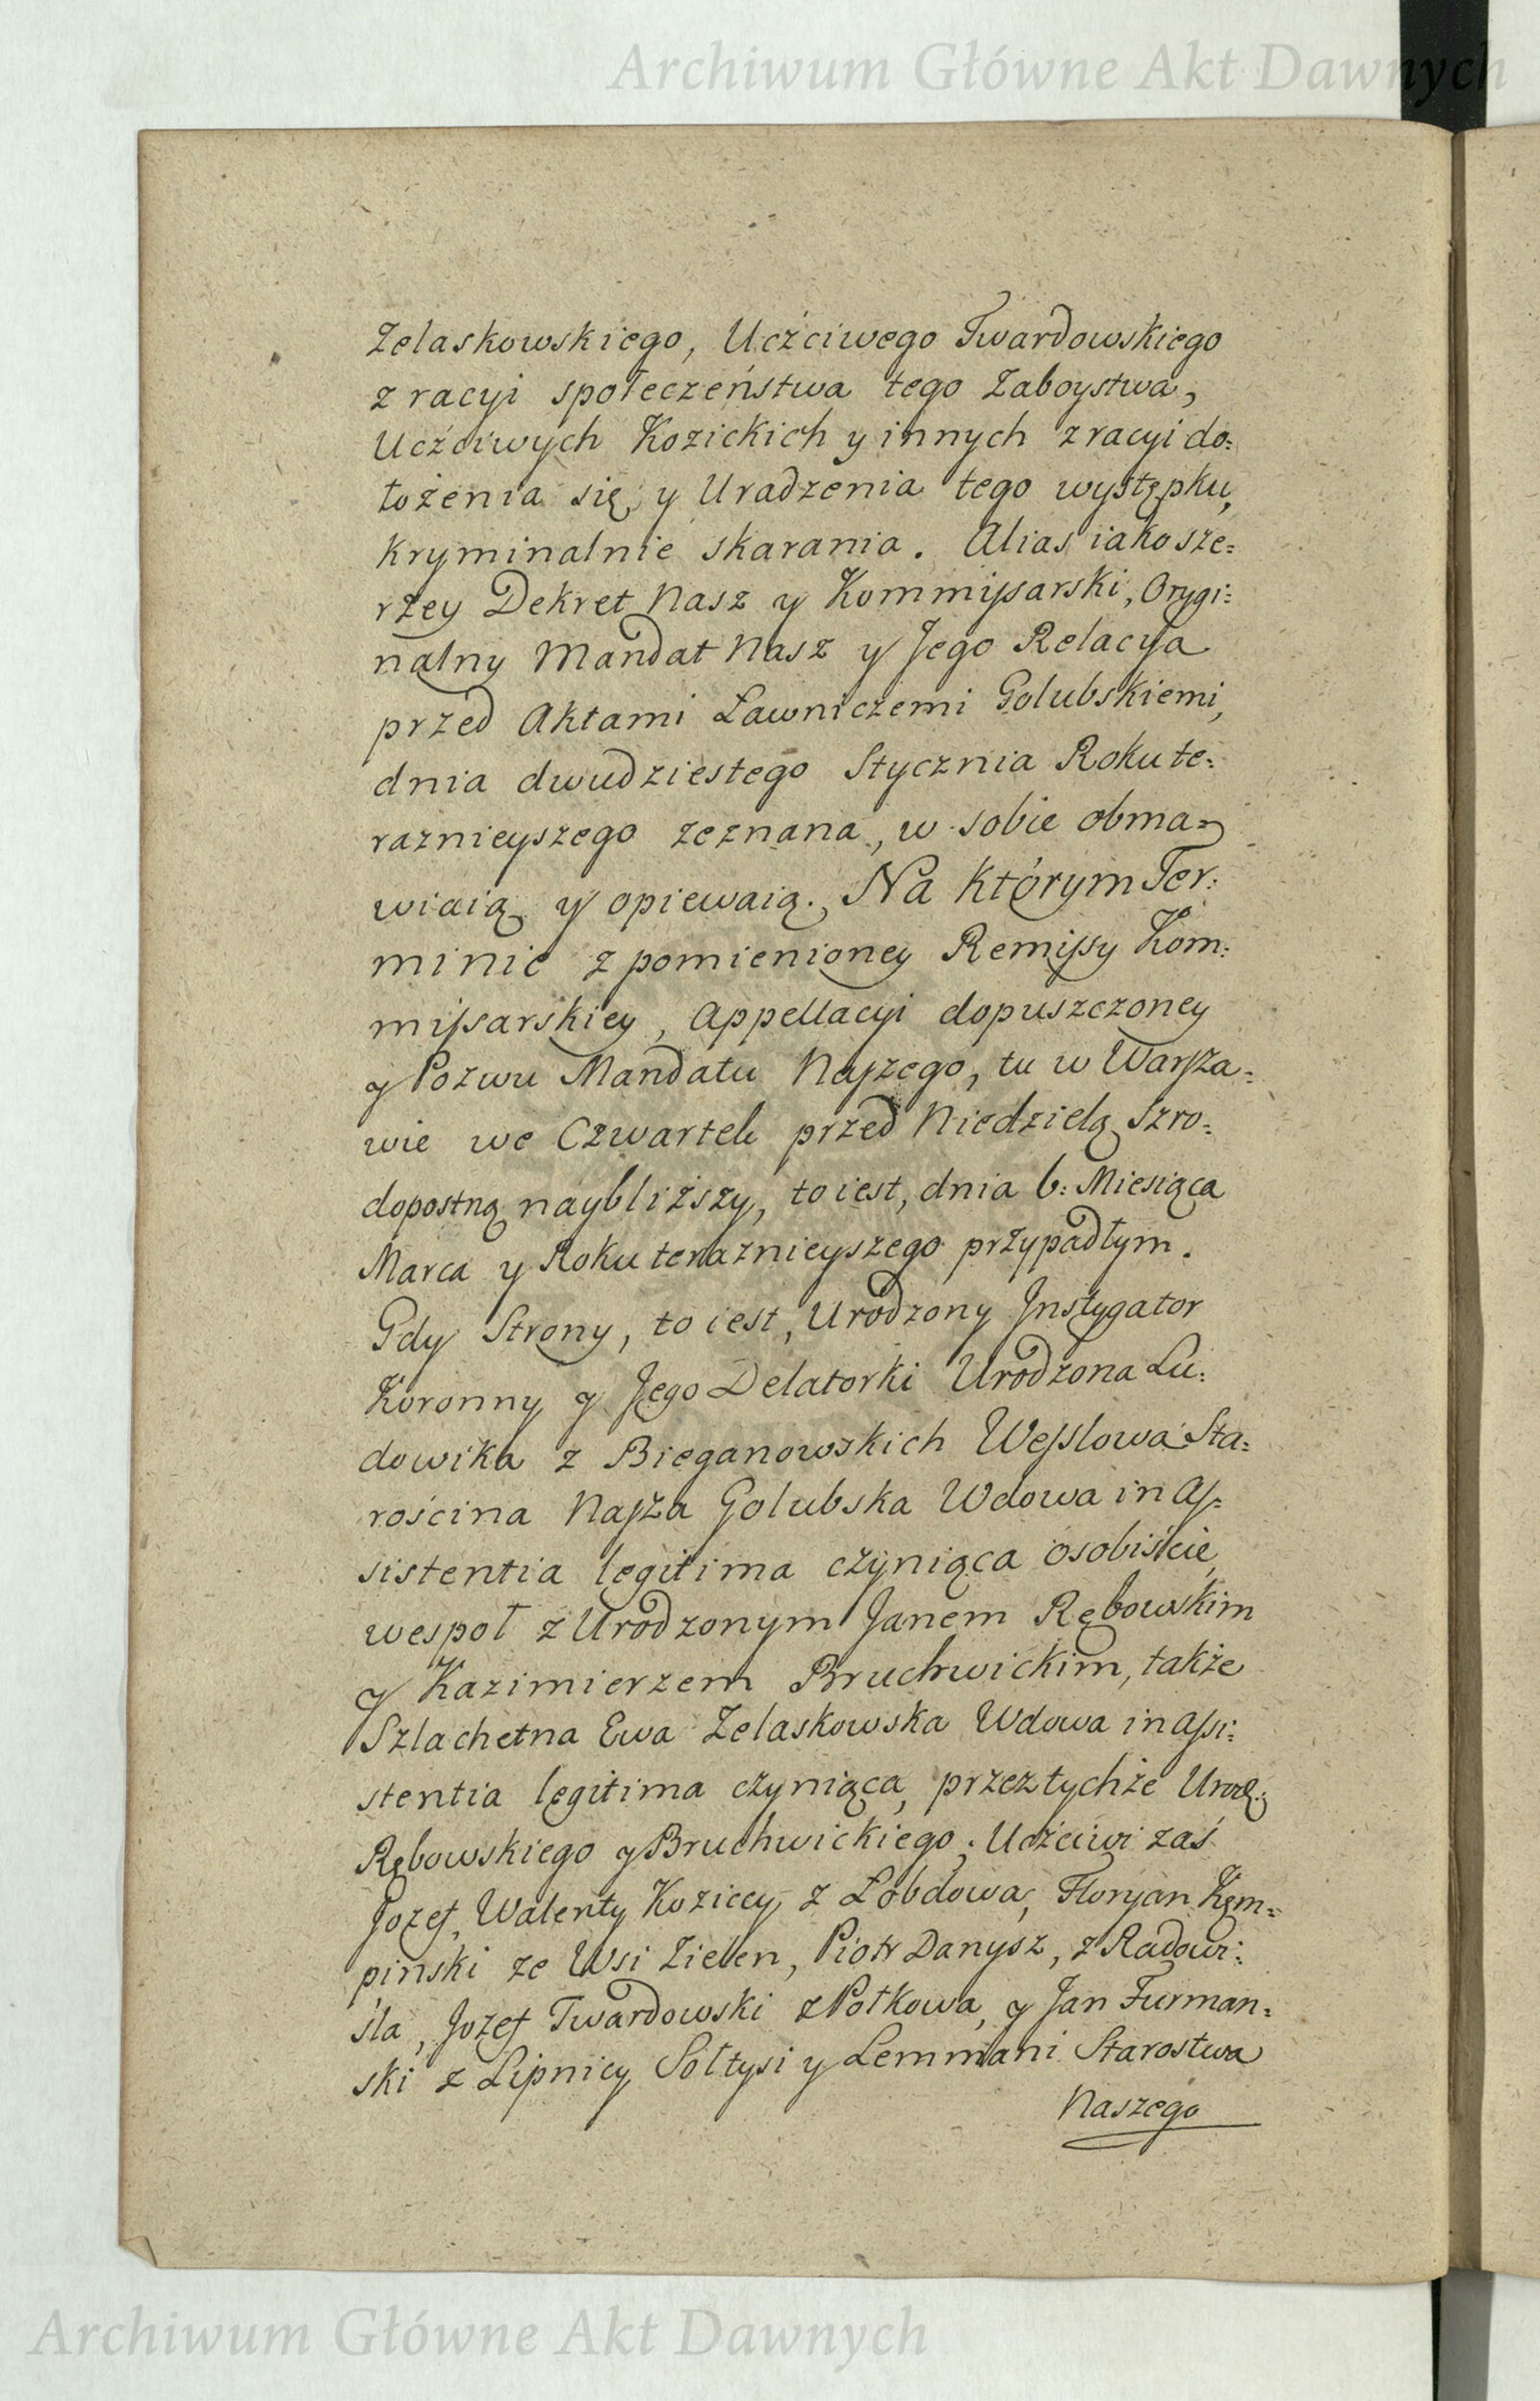 Archiwum Główne Akt Dawnych
Zelaskowskiego, Uczciwego Twardowskiego
z racyi społeczeństwa tego Zaboystwa,
Uczciwych Kozickich y innych z racyi do=
łożenia się y Uradzenia tego występku,
kryminalnie skarania. Alias iako sze=
rzey Dekret Nasz y Kommissarski, Orygi=
nalny Mandat Nasz y Jego Relacya
przed Aktami Ławniczemi Golubskiemi,
dnia dwudziestego Stycznia Roku te=
raznieyszego zeznana, w sobie obma=
wiaią y opiewaią. Na którym Ter=
minie z pomienioney Remissy Kom=
missarskiey, Appellacyi dopuszczoney
y Pozwu Mandatu Naszego, tu w Warsza=
wie we Czwartek przed Niedzielą Szro=
dopostną naybliższy, to iest, dnia 6: Miesiąca
Marca y Roku teraznieyszego przypadłym.
Gdy Strony, to iest, Urodzony Instygator
Koronny y Jego Delatorki Urodzona Lu=
dowika z Bieganowskich Wesslowa Sta=
rościna Nasza Golubska Wdowa in As=
sistentia legitima czyniąca osobiście,
wespoł z Urodzonym Janem Rębowskim
y Kazimierzem Bruchwickim, także
Szlachetna Ewa Zelaskowska Wdowa in assi=
stentia legitima czyniąca, przez tychże Urodz:
Rębowskiego y Bruchwickiego; Uczciwi zaś
Jozef, Walenty Koziccy z Łobdowa, Floryan Kęm=
pinski ze Wsi Zielen, Piotr Danysz, z Radowi=
śla, Jozef Twardowski z Płotkowa, y Jan Furman=
ski z Lipnicy Sołtysi y Lemmani Starostwa
Naszego
Archiwum Główne Akt Dawnych